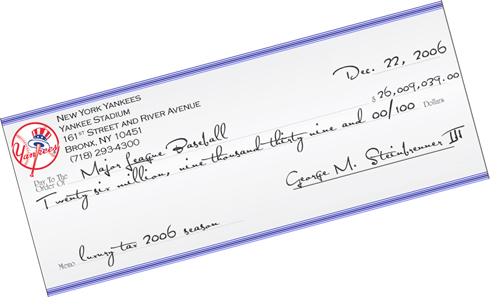 Dec. 22, 2006
NEW YORK YANKEES
YANKEE STADIUM
161ST STREET AND RIVER AVENUE
BRONX, NY 10451
(718) 293-4300
Yankees
Pay To The
Order Of Major League Baseball $ 26,009,039.00
Twenty six million, nine thousand thirty nine and 00/100 Dollars
George M. Steinbrenner III
Memo luxury tax 2006 season